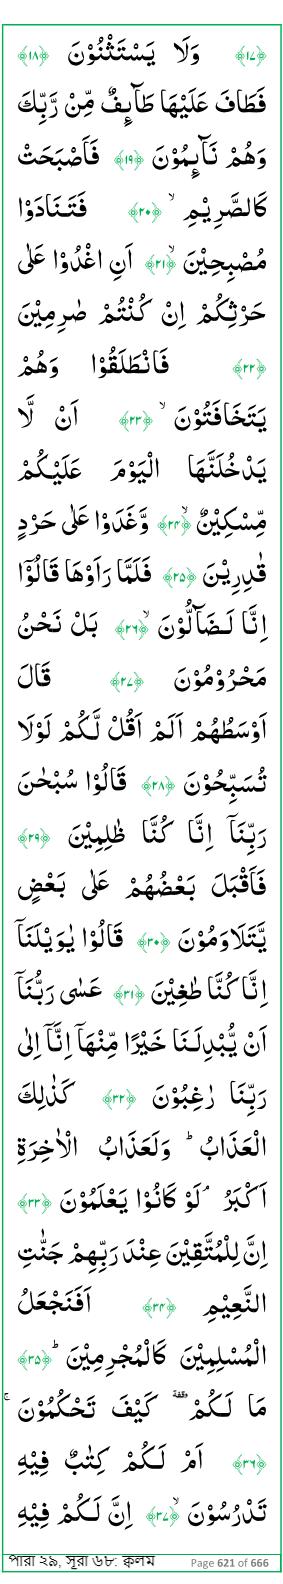 ﴿۱۷﴾ وَلَا يَسْتَثْنُوْنَ ﴿۱۸﴾
فَطَافَ عَلَيْهَا طَآئِفٌ مِّنْ رَّبِّكَ
وَهُمْ نَآئِمُوْنَ ﴿۱۹﴾ فَاَصْبَحَتْ
كَالصَّرِيْمِ ۙ ﴿۲۰﴾ فَتَنَادَوْا
مُصْبِحِيْنَ ۙ ﴿۲۱﴾ اَنِ اغْدُوْا عَلٰى
حَرْثِكُمْ اِنْ كُنْتُمْ صٰرِمِيْنَ
﴿۲۲﴾ فَانْطَلَقُوْا وَهُمْ
يَتَخَافَتُوْنَ ۙ ﴿۲۳﴾ اَنْ لَّا
يَدْخُلَنَّهَا الْيَوْمَ عَلَيْكُمْ
مِّسْكِيْنٌ ۙ ﴿۲۴﴾ وَّغَدَوْا عَلٰى حَرْدٍ
قٰدِرِيْنَ ﴿۲۵﴾ فَلَمَّا رَاَوْهَا قَالُوْٓا
اِنَّا لَضَآلُّوْنَ ۙ ﴿۲۶﴾ بَلْ نَحْنُ
مَحْرُوْمُوْنَ ﴿۲۷﴾ قَالَ
اَوْسَطُهُمْ اَلَمْ اَقُلْ لَّكُمْ لَوْلَا
تُسَبِّحُوْنَ ﴿۲۸﴾ قَالُوْا سُبْحٰنَ
رَبِّنَآ اِنَّا كُنَّا ظٰلِمِيْنَ ﴿۲۹﴾
فَاَقْبَلَ بَعْضُهُمْ عَلٰى بَعْضٍ
يَّتَلَاوَمُوْنَ ﴿۳۰﴾ قَالُوْا يٰوَيْلَنَآ
اِنَّا كُنَّا طٰغِيْنَ ﴿۳۱﴾ عَسٰى رَبُّنَآ
اَنْ يُّبْدِلَنَا خَيْرًا مِّنْهَآ اِنَّآ اِلٰى
رَبِّنَا رٰغِبُوْنَ ﴿۳۲﴾ كَذٰلِكَ
الْعَذَابُ ؕ وَلَعَذَابُ الْاٰخِرَةِ
اَكْبَرُ ۘ لَوْ كَانُوْا يَعْلَمُوْنَ ﴿۳۳﴾
اِنَّ لِلْمُتَّقِيْنَ عِنْدَ رَبِّهِمْ جَنّٰتِ
النَّعِيْمِ ﴿۳۴﴾ اَفَنَجْعَلُ
الْمُسْلِمِيْنَ كَالْمُجْرِمِيْنَ ؕ ﴿۳۵﴾
مَا لَكُمْ ۥ كَيْفَ تَحْكُمُوْنَ ۚ
﴿۳۶﴾ اَمْ لَكُمْ كِتٰبٌ فِيْهِ
تَدْرُسُوْنَ ۙ ﴿۳۷﴾ اِنَّ لَكُمْ فِيْهِ
পারা ২৯, সূরা ৬৮: ক্বলম Page 621 of 666